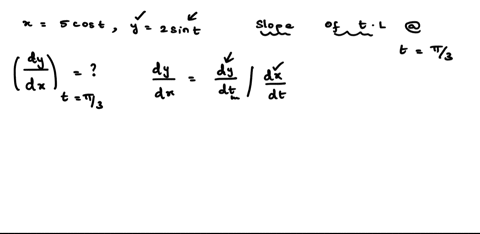 x = 5 cos t, y = 2 sin t Slope of t.L @ t = π/3
(dy/dx) t = π/3 = ? dy/dx = dy/dt / dx/dt